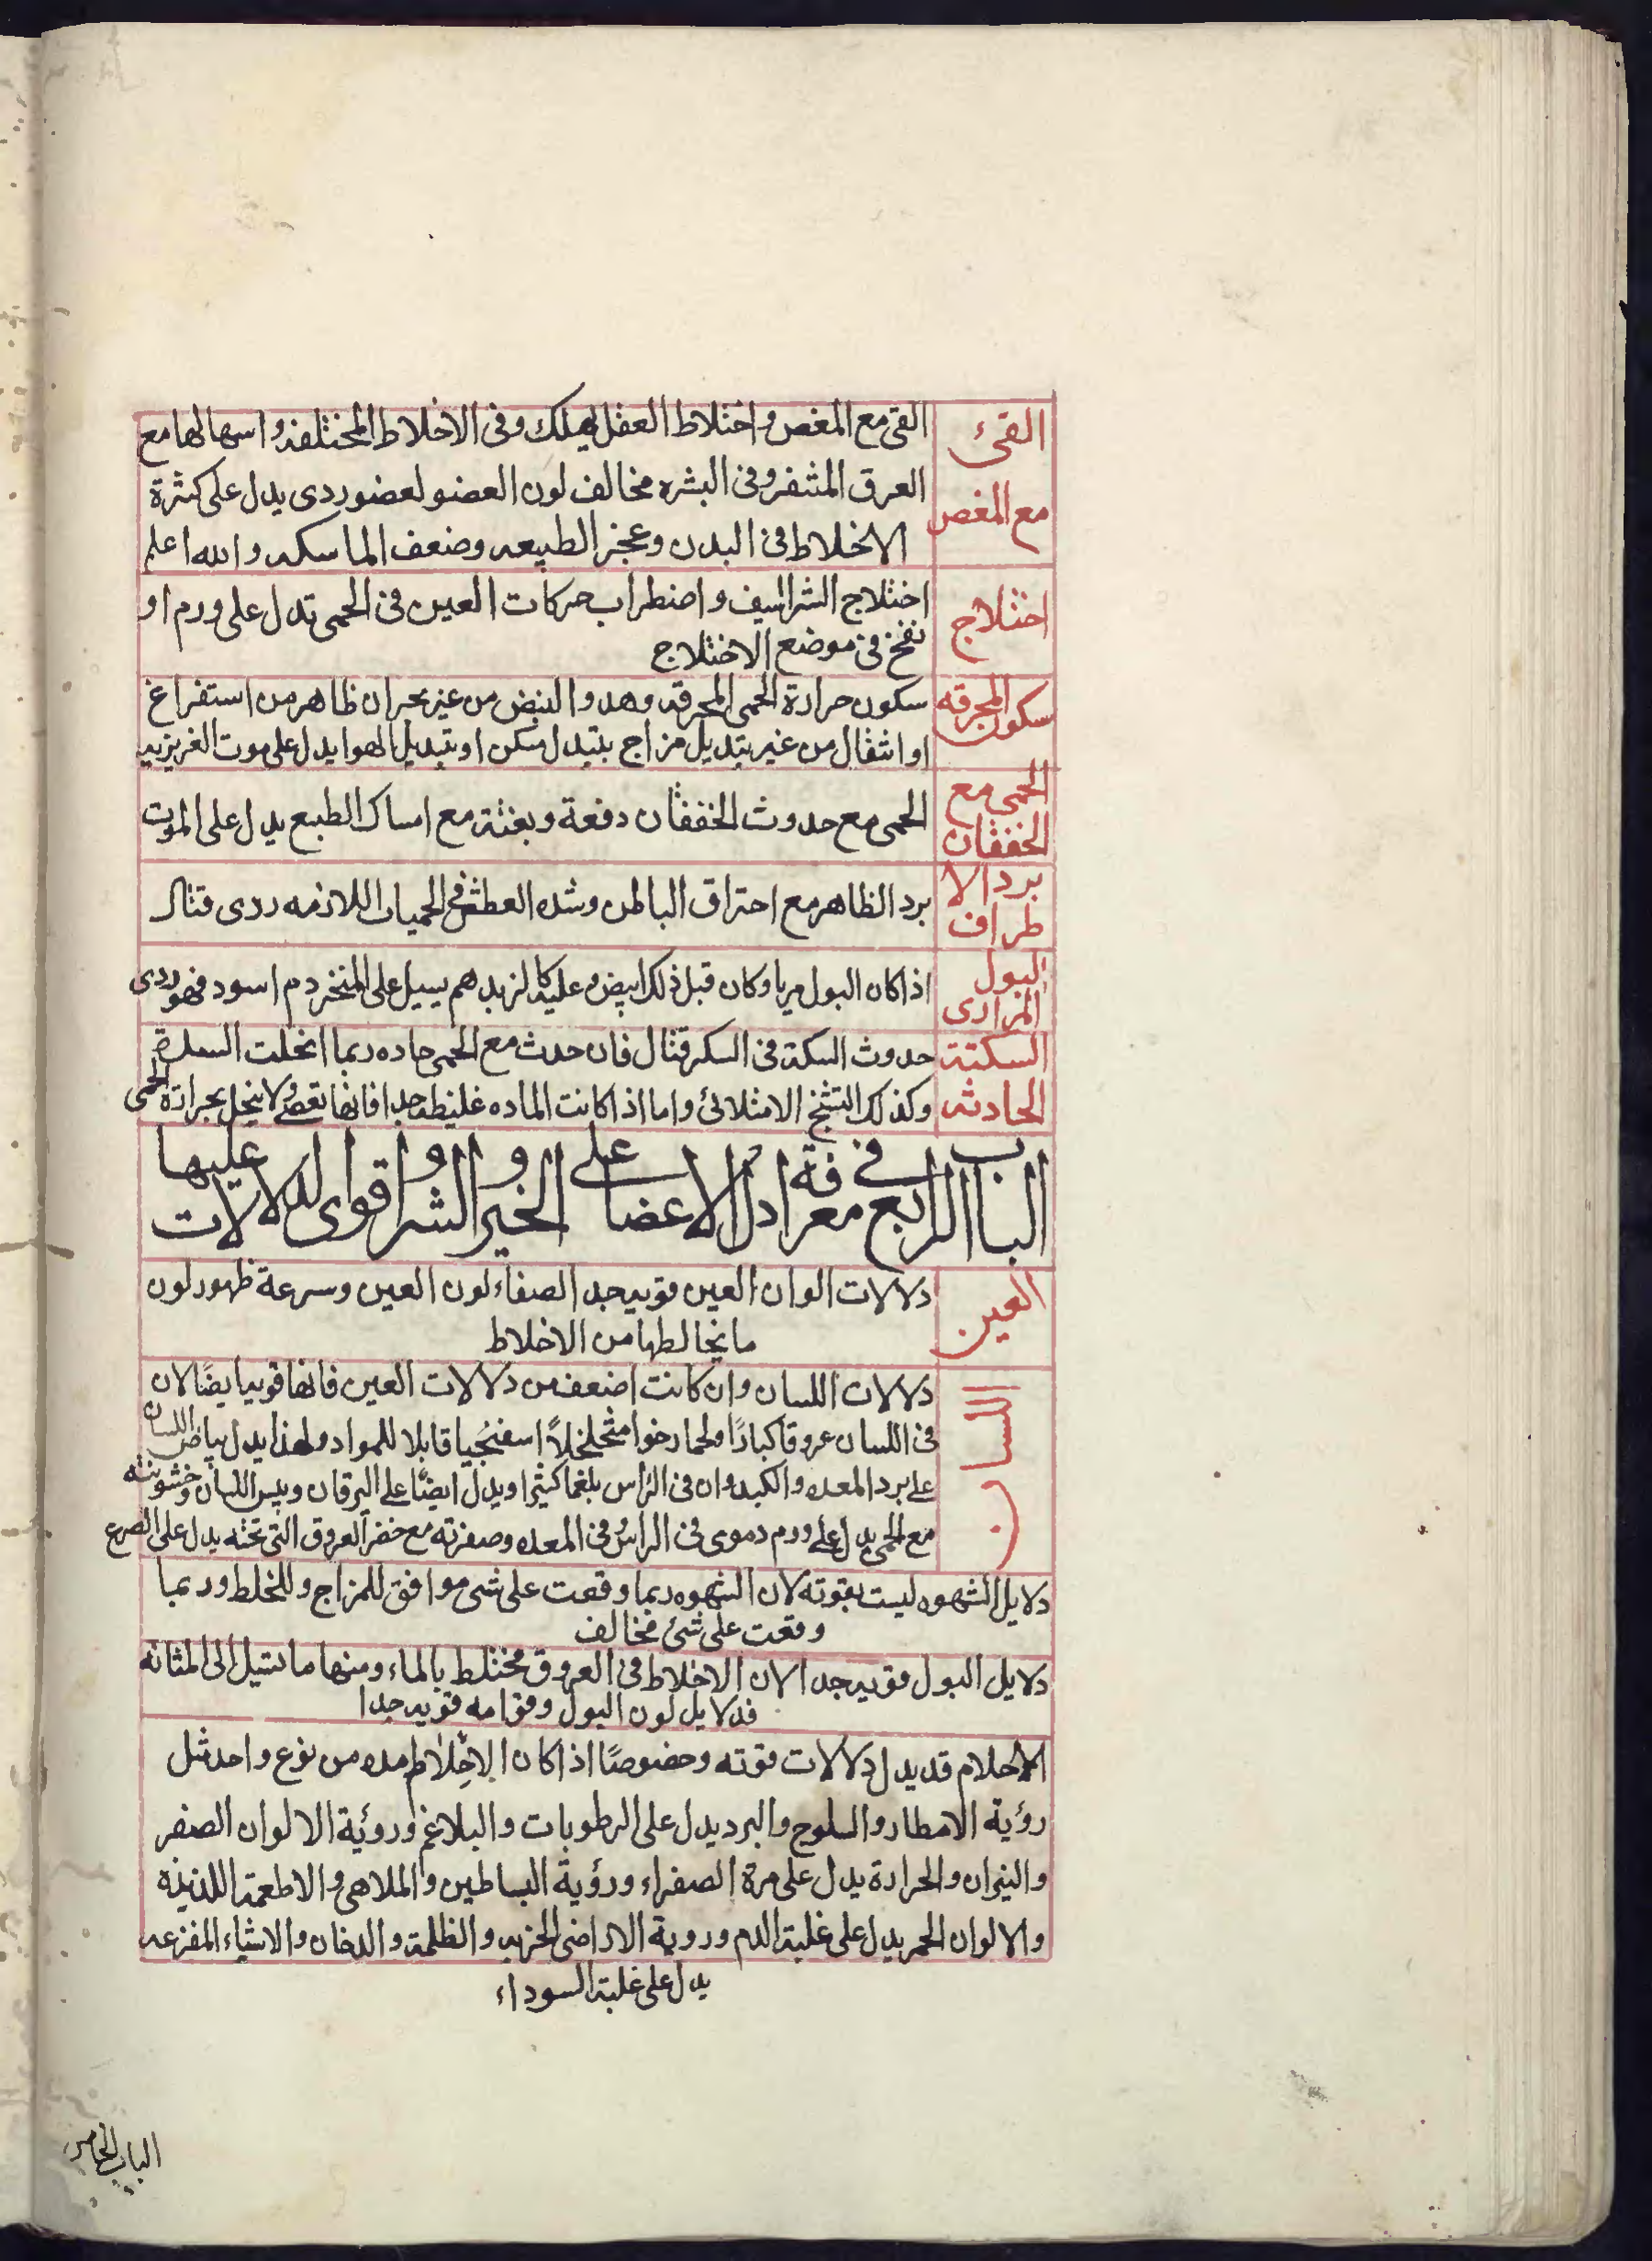 القئ
مع المغص
القى مع المغص واختلاط العقل يهلك وفى الاخلاط المختلفه واسهالها مع
العرق المتفر وفى البشره مخالف لون العضو لعضو ردى يدل على كثرة
الاخلاط فى البدن وعجز الطبيعه وضعف الماسكه والله اعلم
اختلاج
اختلاج الشراسيف واضطراب حركات العين فى الحمى تدل على ورم او
نفخ فى موضع الاختلاج
سكون المحرقه
سكون حرارة الحمى المحرقه وهدو النبض من غير بحران ظاهر من استفراغ
او انتقال من غير بتديل مزاج بتبدل مسكن او بتبديل الهوا يدل على موت الغريزيه
الحمى مع
الخفقان
الحمى مع حدوث الخفقان دفعة وبغتة مع امساك الطبع يدل على الموت
برد الا
طراف
برد الظاهر مع احتراق الباطن وشده العطش فى الحميات اللازمه ردى قتال
البول
المرارى
اذا كان البول مريا وكان قبل ذلك ابيض وعليه كالزبد هم يسيل على المنخر دم اسود فهو ردى
السكتة
الحادثه
حدوث السكتة فى السكر قتال فان حدث مع الحمى حاده ربما انحلت السدة
وكذلك التشنج الامتلائ واما اذا كانت الماده غليظه جدا فانها تعصى ولا ينحل بحرارة الحمى
الباب الرابع فى معرفة ادل الاعضا على الخير والشر واقوى الدلالات عليها
العين
دلالات الوان العين قويه جدا لصفاء لون العين وسرعة ظهور لون
ما يخالطها من الاخلاط
اللسان
دلالات اللسان وان كانت اضعف من دلالات العين فانها قويه ايضًا لان
فى اللسان عروقا كبارًا ولحما رخوا متخلخلاً اسفنجيا قابلا للمواد ولهذا يدل بياض اللسان
على برد المعده والكبد وان فى الراس بلغما كثيرا ويدل ايضًا على اليرقان ويبس اللسان وخشونته
مع الحمى يدل على ورم دموى فى الراس وفى المعده وصفرته مع خضر العروق التى تحته يدل على الصرع
دلايل الشهوه ليست بقوته لان الشهوه ربما وقعت على شى موافق للمزاج وللخلط وربما
وقعت على شئ مخالف
دلايل البول قويه جدا لان الاخلاط فى العروق مختلط بالماء ومنها ما تسيل الى المثانه
فدلايل لون البول وقوامه قويه جدا
الاحلام قد يدل دلالات قوته وخصوصًا اذا كان الاخلاط مده من نوع واحد مثل
رؤية الامطار والسلوج والبرد يدل على الرطوبات والبلاغم وروئية الالوان الصفر
والنيران والحرارة يدل على مرة الصفراء ورؤية البساطين والملاهى والاطعمة اللذيذه
والالوان الحمر يدل على غلبة الدم وروية الاراضى الخربه والظلمة والدخان والاشياء المفزعه
يدل على غلبة السوداء
الباب الخامس